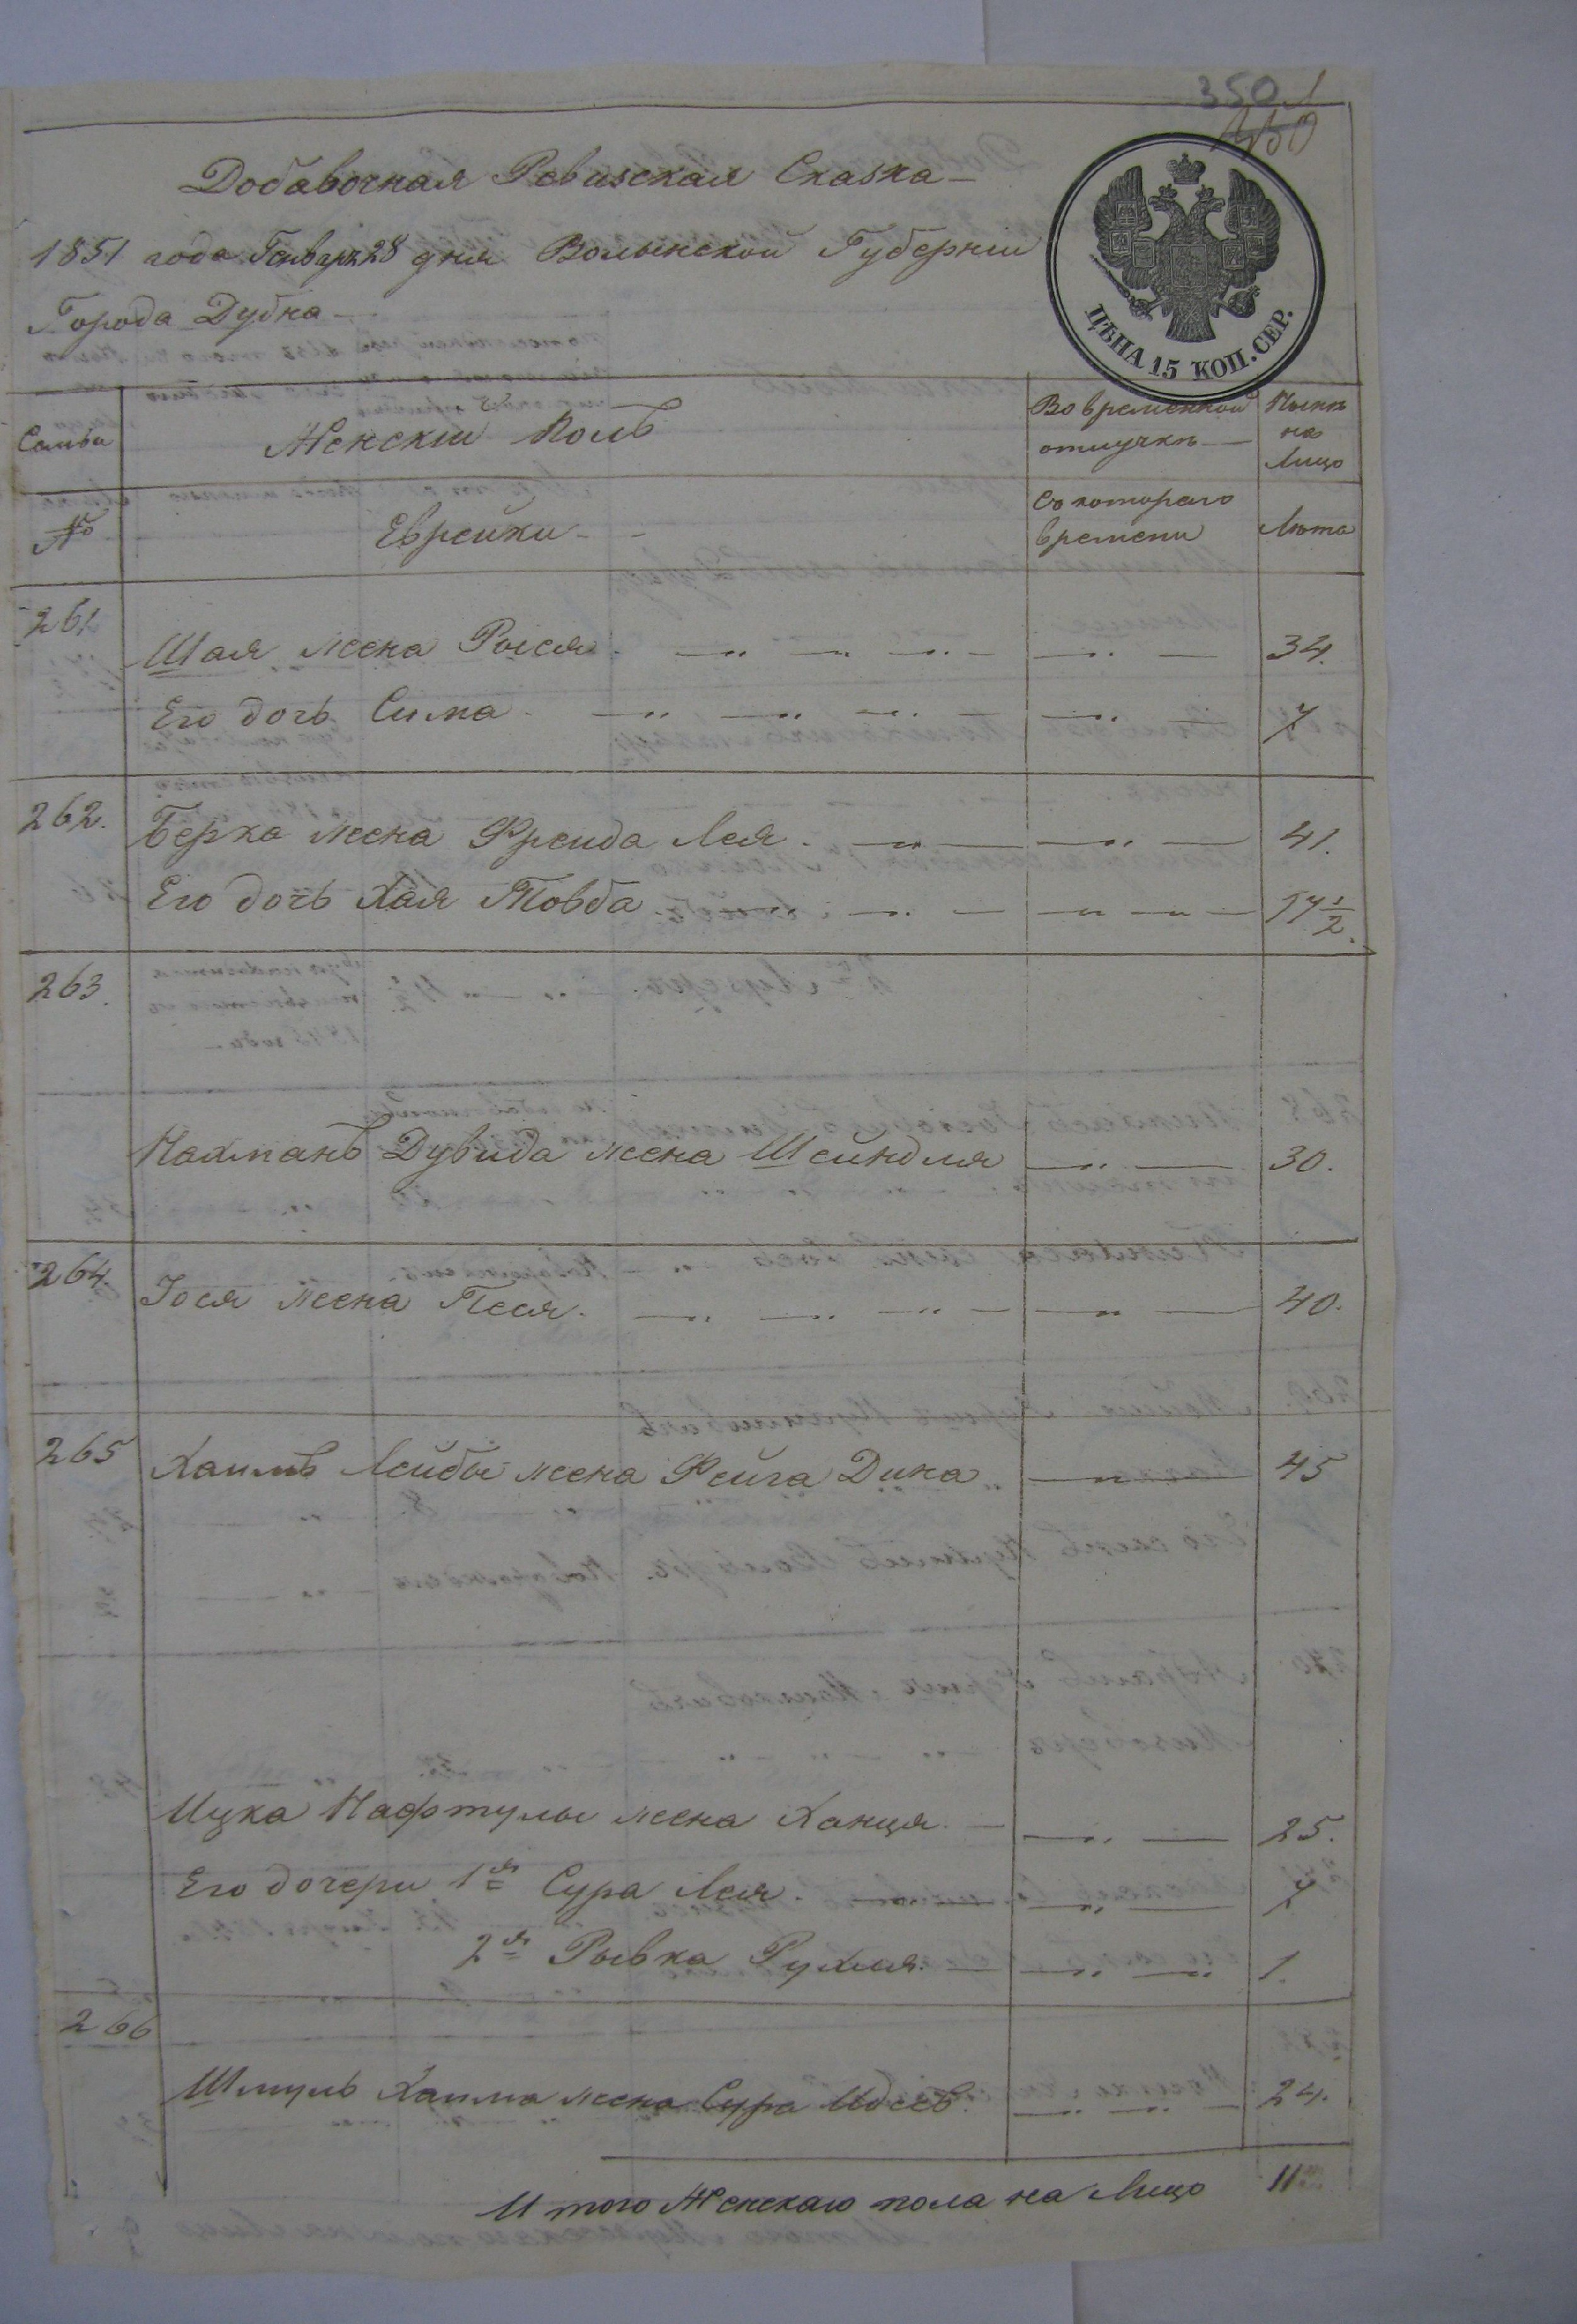 350
450
Добавочная Ревизская Сказка
1851 года Генваря 28 дня Волынской Губерніи
Города Дубна
ЦѢНА 15 КОП. СЕР.
Семьи
Женскій Полъ
Во временной отлучкѣ
Нынѣ на Лицо
№
Еврейки
Съ котораго времени
Лѣта
261.
Шая жена Рыся 34.
Его дочь Сима 7
262. Берка жена Фрейда Лея 41.
Его дочь Хая Товба 17 1/2.
263.
Нахманъ Дувида жена Шейндля 30.
264. Іося жена Песя 40.
265 Хаимъ Лейбы жена Фейга Дина 45
Ицка Нафтулы жена Ханця 25.
Его дочери 1я Сура Лея 7
2я Рывка Рухля 1.
266
Шмуль Хаима жена Сура 24.
Итого Женскаго пола на Лицо 11